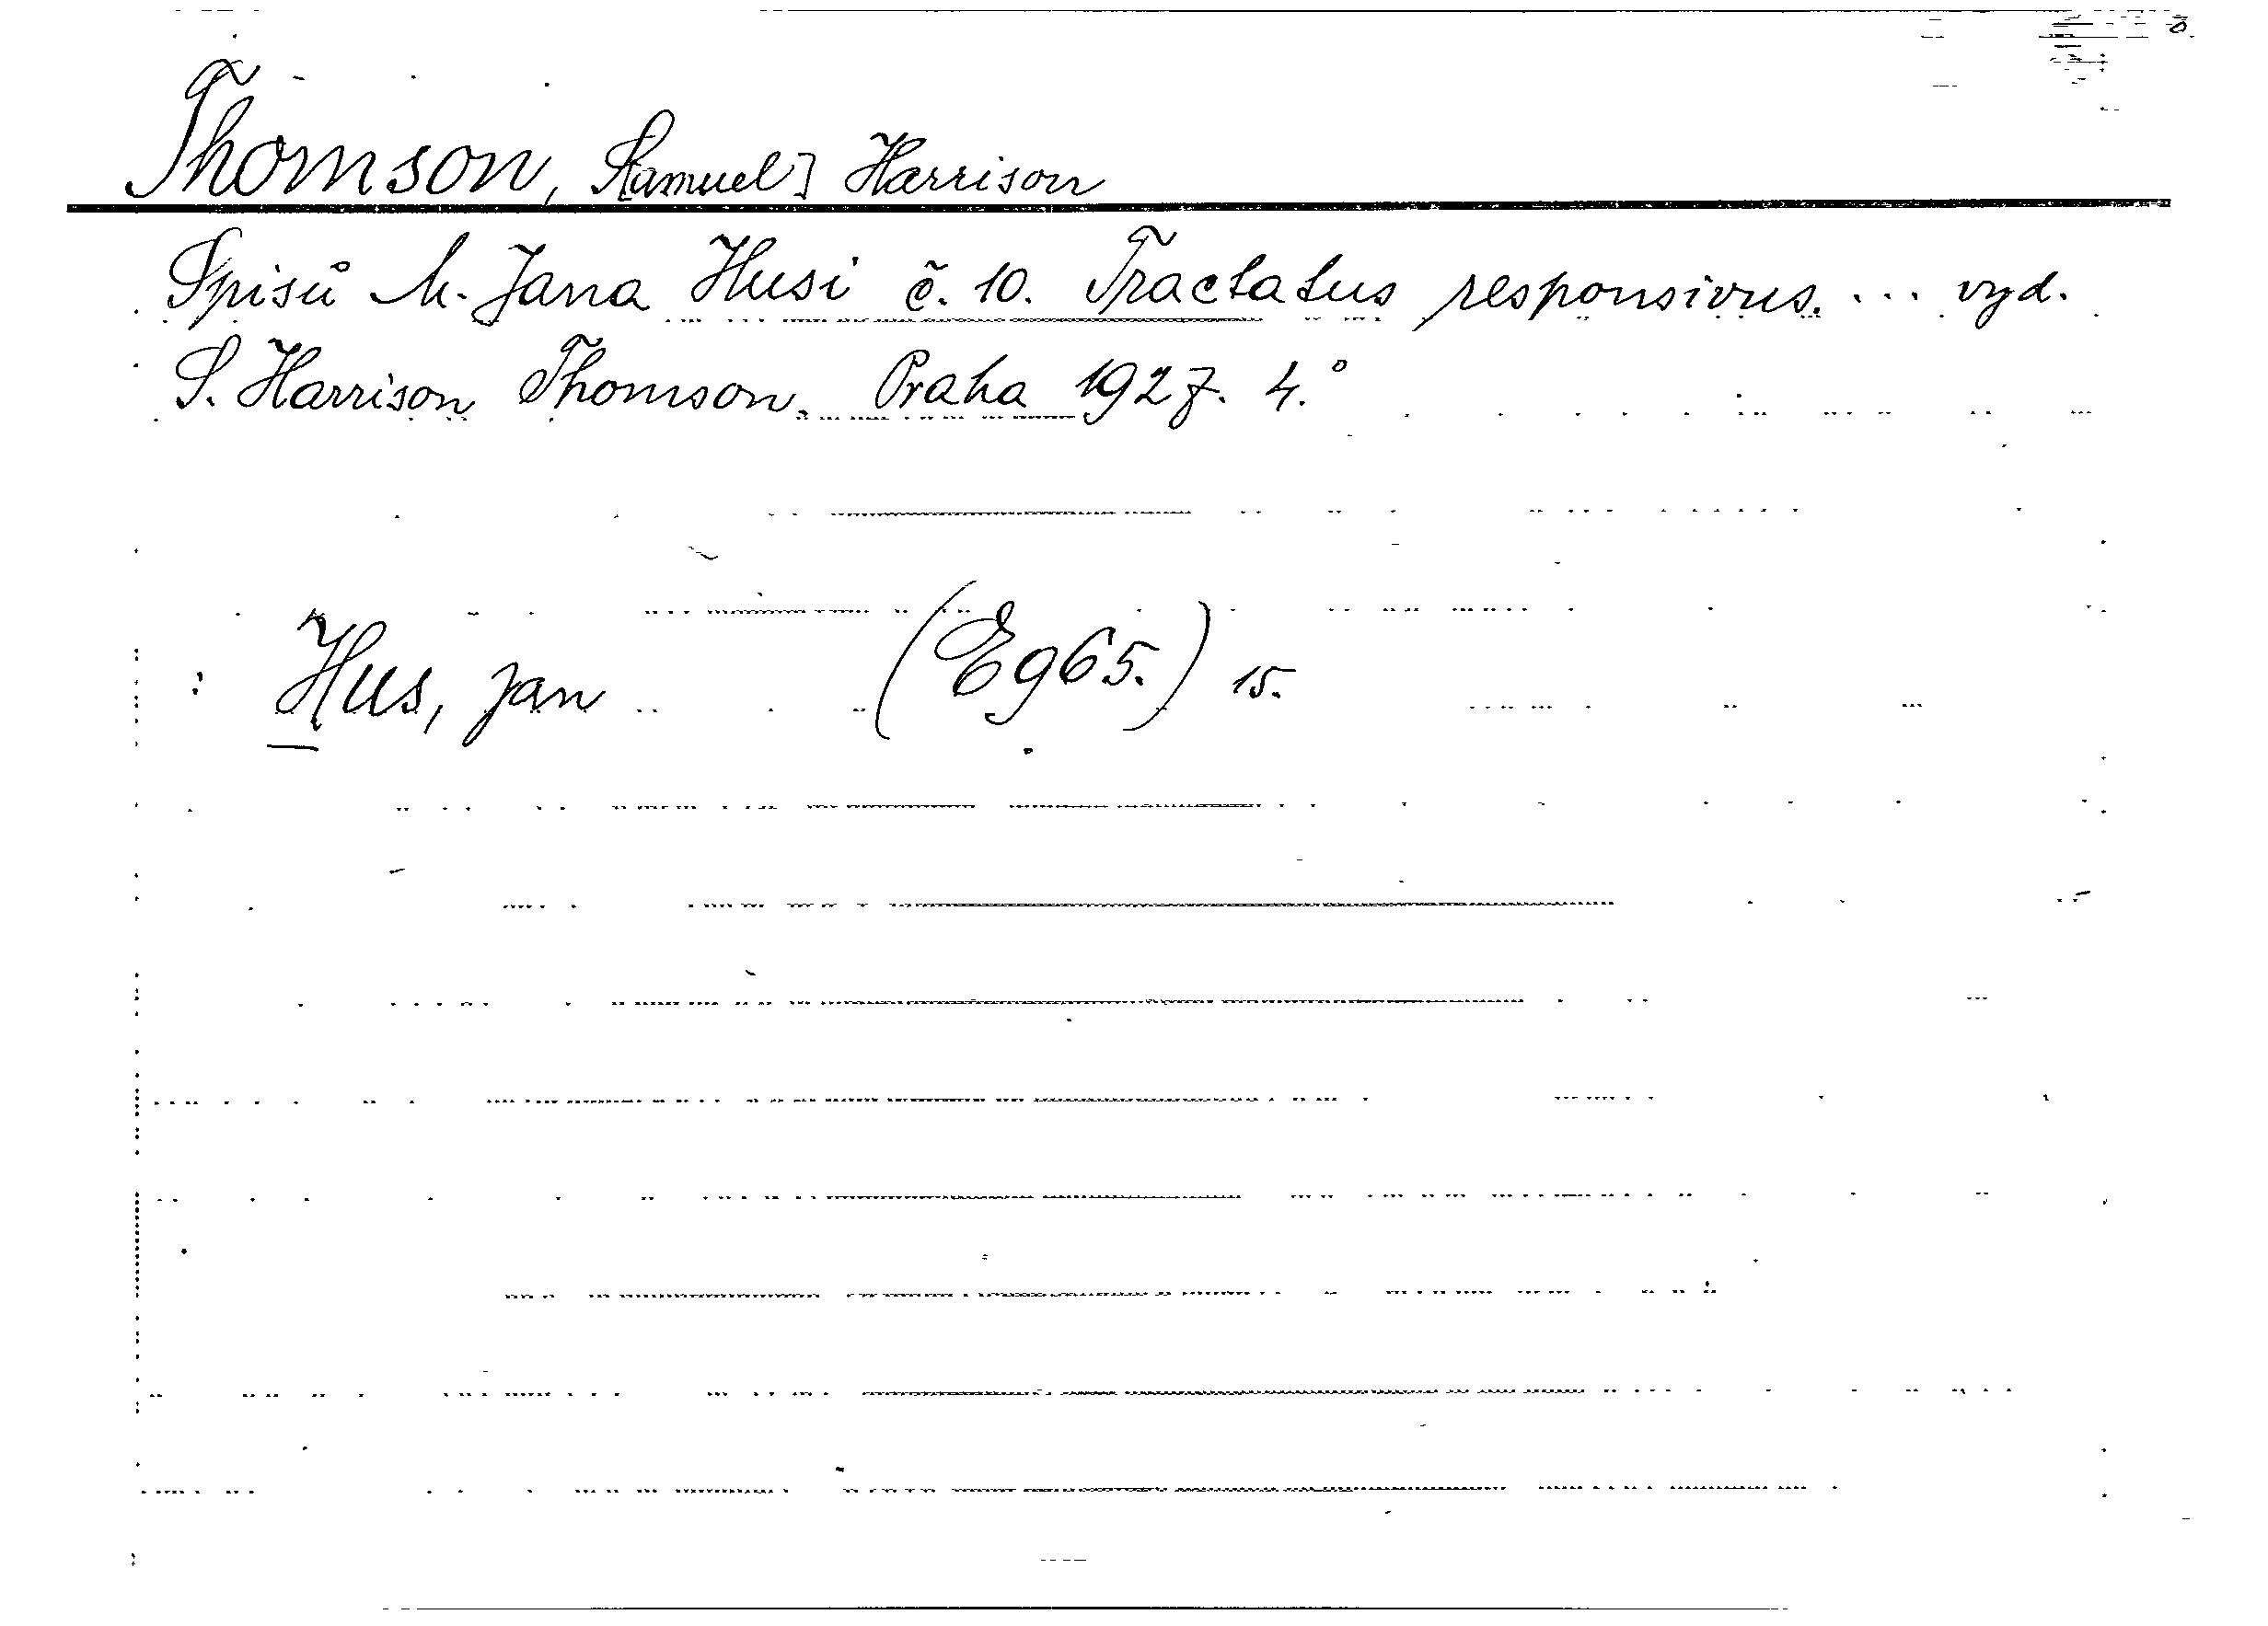 Thomson, S[amuel] Harrison
Spisů M. Jana Husi č. 10. Tractatus responsivus. ... vyd.
S. Harrison Thomson. Praha 1927. 4.°
: Hus, Jan (Eg65.) 15.